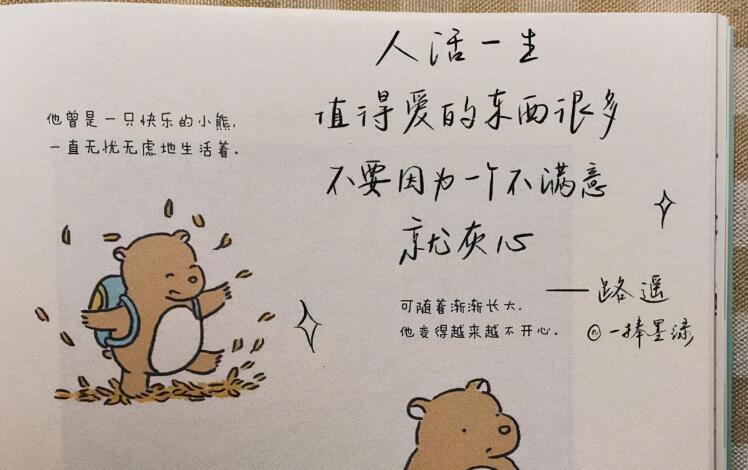 人活一生
值得爱的东西很多
不要因为一个不满意
就灰心
——路遥
@一捧星绿
他曾是一只快乐的小熊,
一直无忧无虑地生活着.
可随着渐渐长大,
他变得越来越不开心.